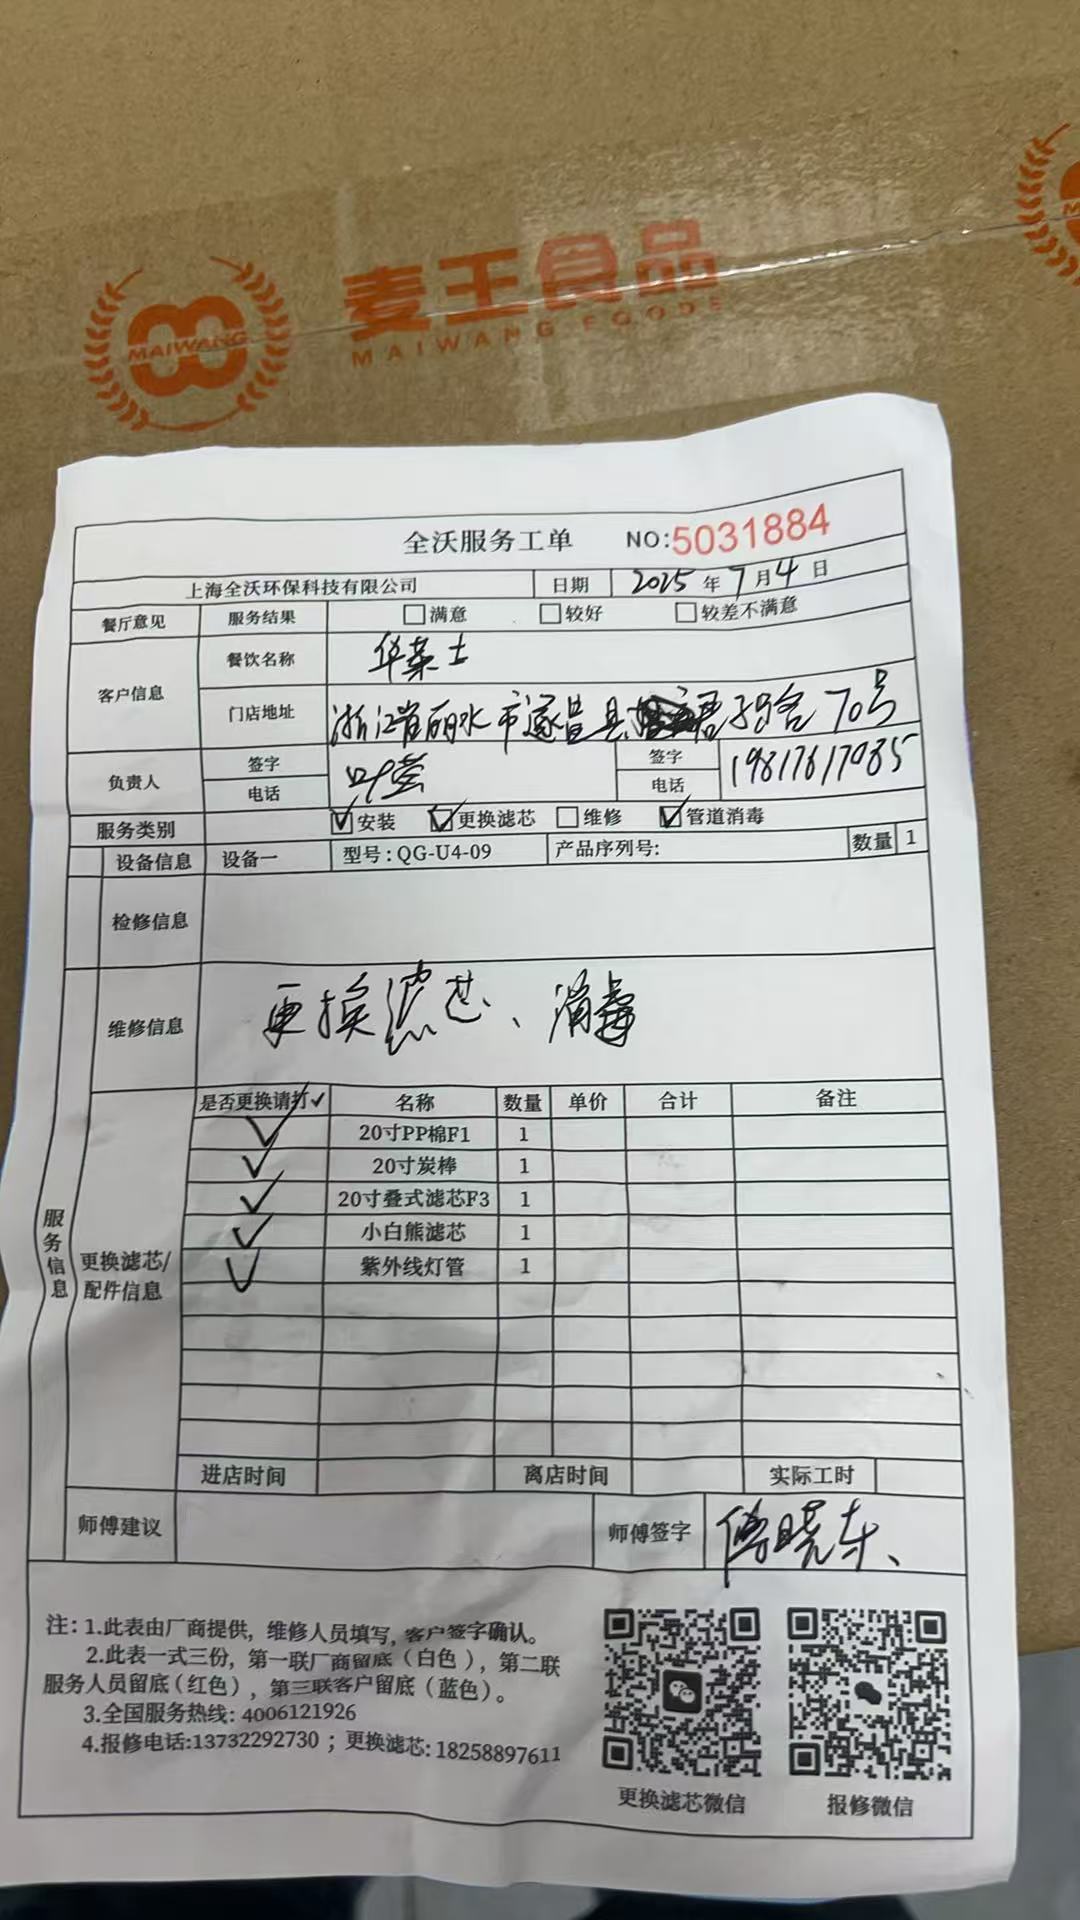 麦王食品
MAIWANG FOODS
MAIWANG
全沃服务工单 NO:5031884
上海全沃环保科技有限公司 日期 2025年7月4日
餐厅意见 服务结果 □满意 □较好 □较差不满意
客户信息 餐饮名称 华莱士
门店地址 浙江省丽水市遂昌县君子路70号
负责人 签字 叶莹 签字
电话 电话 19817617085
服务类别 ☑安装 ☑更换滤芯 □维修 ☑管道消毒
设备信息 设备一 型号:QG-U4-09 产品序列号: 数量 1
检修信息
维修信息 更换滤芯、消毒
服务信息
更换滤芯/配件信息
是否更换请打✓ 名称 数量 单价 合计 备注
✓ 20寸PP棉F1 1
✓ 20寸炭棒 1
✓ 20寸叠式滤芯F3 1
✓ 小白熊滤芯 1
✓ 紫外线灯管 1
进店时间 离店时间 实际工时
师傅建议 师傅签字 傅晓东、
注:1.此表由厂商提供,维修人员填写,客户签字确认。
2.此表一式三份,第一联厂商留底(白色),第二联
服务人员留底(红色),第三联客户留底(蓝色)。
3.全国服务热线:4006121926
4.报修电话:13732292730;更换滤芯:18258897611
更换滤芯微信 报修微信